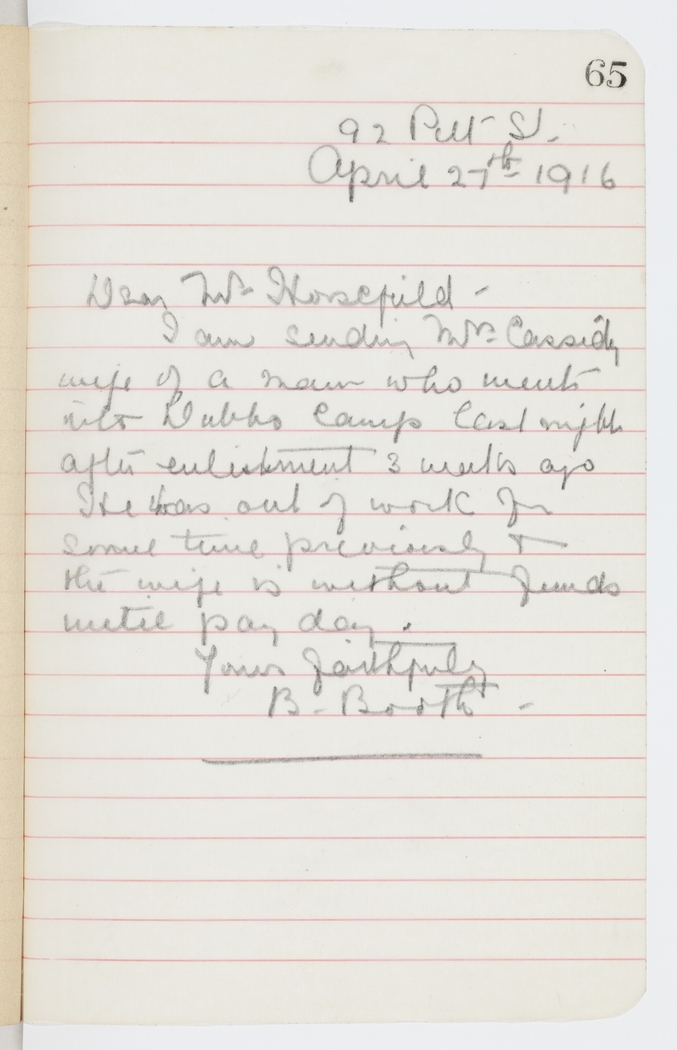 65
92 Pitt St.
April 27th 1916
Dear Mr Horsefield -
I am sending Mrs Cassidy
wife of a man who went
into Dubbo Camp last night
after enlistment 3 weeks ago
He was out of work for
some time previously &
the wife is without funds
until pay day.
Yours faithfully
B - Booth -